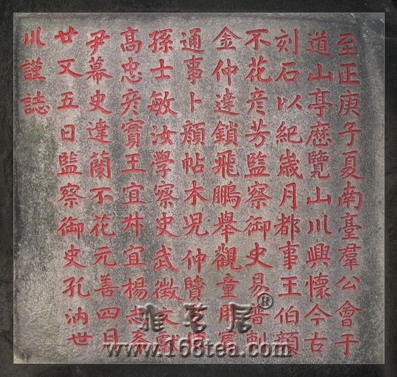 至正庚子夏南臺羣公會于
道山亭歷覽山川興懷今古
刻石以紀歲月都事王伯顏
不花彥芳監察御史易普剌
金仲逵鎖飛鵬舉觀童用賓
通事卜顏帖木児仲贇
孫士敏汝學察史武徵文獻
高忠彥實王宜宜楊志
尹幕史達蘭不花元善四月
廿又五日監察御史孔汭世
川謹誌
雅茗居®
www.168tea.com